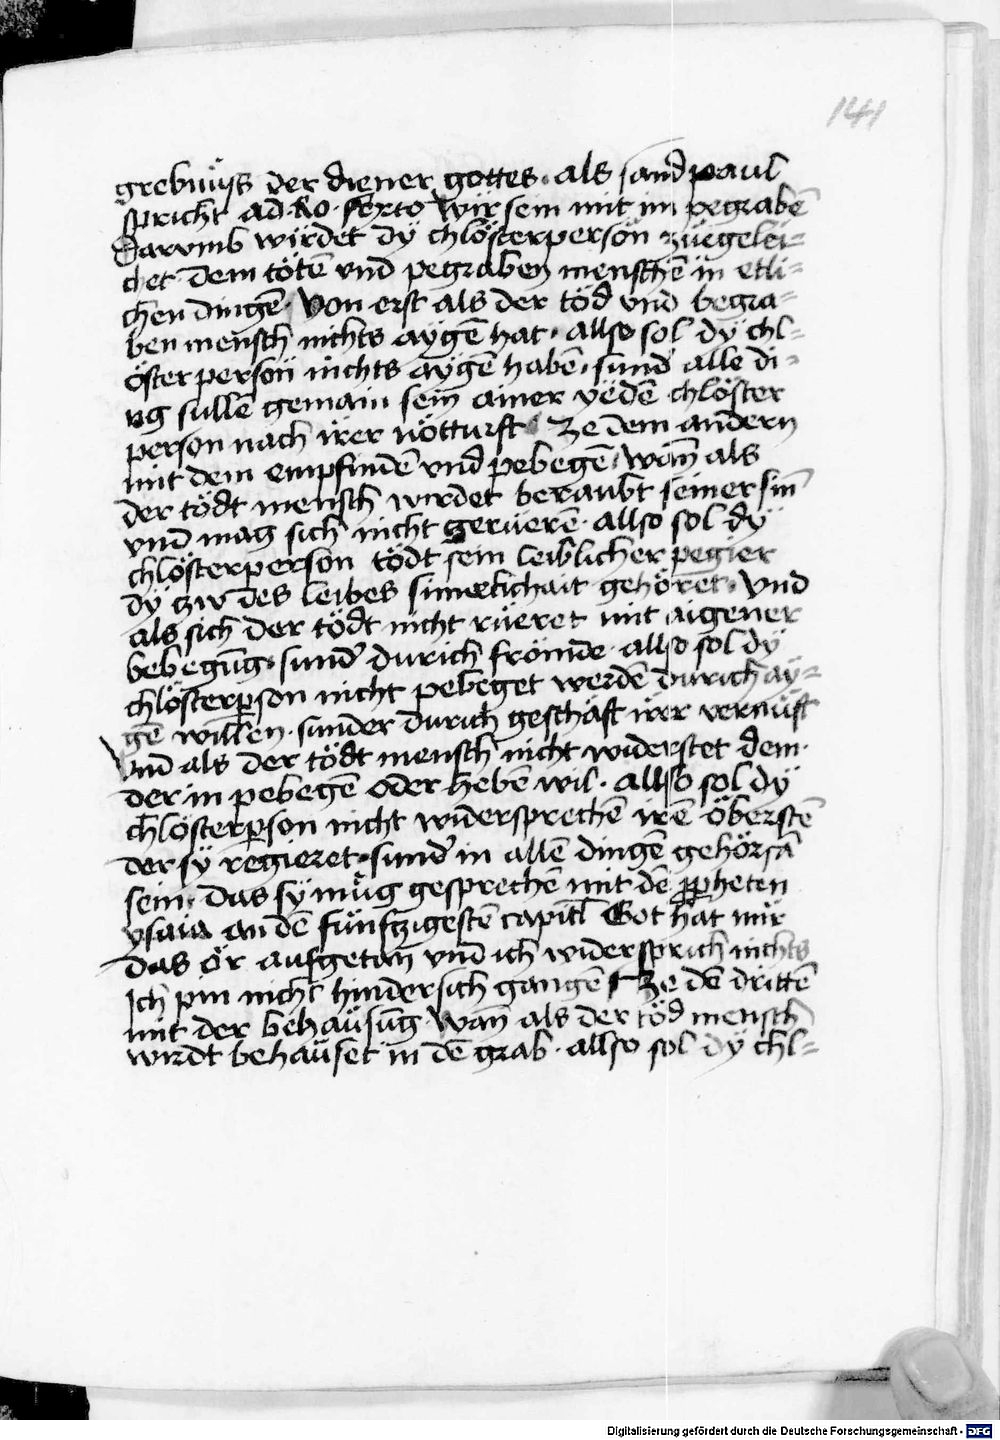 141
grebnüss der diener gottes · als sand paul
spricht ad · Ro · sexto Wir sein mit im pegrabē
Darvmb wirdet dÿ chlösterpersön zuegelei=
chet dem tötē vnd pegraben menschē in etli=
chen dingē · Von erst als der töd vnd begra=
ben mensch nichts aÿgē hat · allso sol dÿ chl=
öster persön nichts aÿgē habē · sund̓ alle di=
ng sullē gemain sein ainer yedē chlöster
person nach irer nötturft Ze dem andern
mit dem empfindē vnd pebegē · wan̄ als
der tödt mensch wirdet beraubt seiner sin̄
vnd mag sich nicht geruerē · allso sol dÿ
chlösterperson tödt sein leiblicher pegier
dÿ zw des leibes sinnelichait gehöret · Vnd
als sich der tödt nicht rüeret mit aigener
bebegūg · sund̓ durich frömde · allso sol dÿ
chlösterꝑson nicht pebeget werdē durich aÿ=
gē willen · sunder durich geschäft irer vernüft
Vnd als der tödt mensch nicht widerstet dem ·
der in pebegē oder hebē wil · allso sol dÿ
chlösterꝑson nicht widersprechē irē öberstē
der sÿ regieret · sund̓ in allē dingē gehörsā
sein · Das sÿ müg gesprechē mit dē ꝓpheten
ysaia an dē fünfzigestē capitl Got hat mir
das ör aufgetan vnd ich widersprich nichts
Ich pin nicht hindersich gangē Ze dē drittē
mit der behäusūg Wan̄ als der töd mensch
wirdt behäuset in dē grab · allso sol dÿ chl=
Digitalisierung gefördert durch die Deutsche Forschungsgemeinschaft - DFG